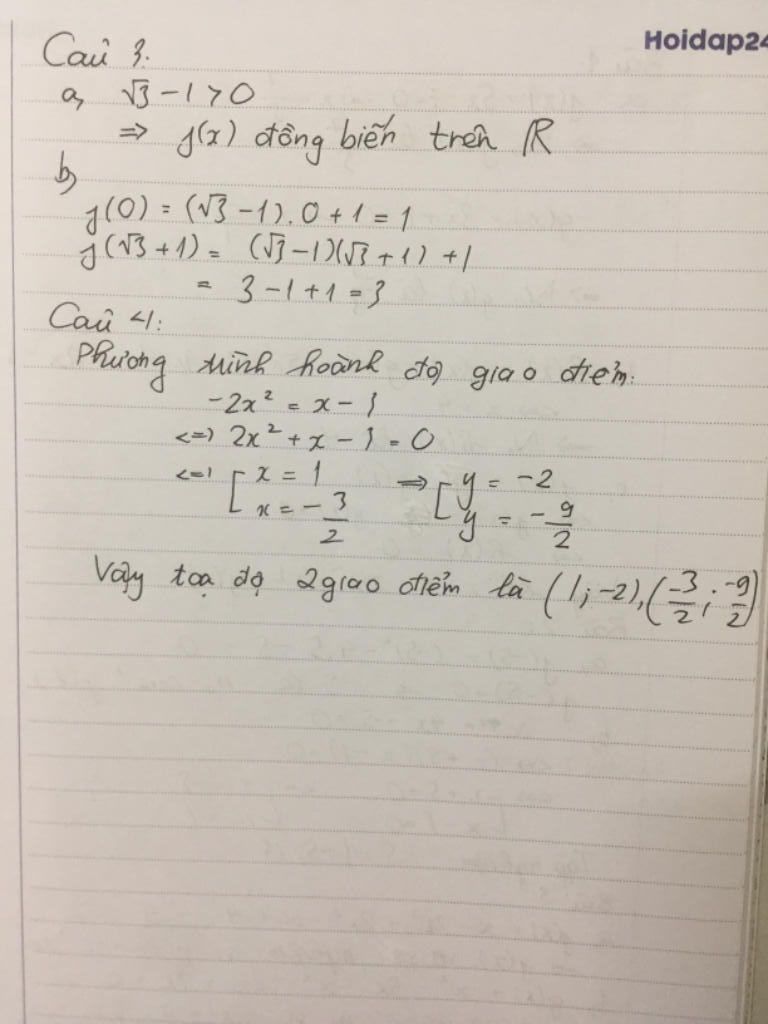 Hoidap24
Câu 3.
a, √3 - 1 > 0
=> y(x) đồng biến trên R
b,
y(0) = (√3 - 1). 0 + 1 = 1
y(√3 + 1) = (√3 - 1)(√3 + 1) + 1
= 3 - 1 + 1 = 3
Câu 4:
Phương trình hoành độ giao điểm:
-2x² = x - 3
<=> 2x² + x - 3 = 0
<=> [ x = 1 => [ y = -2
x = -3/2 y = -9/2
Vậy toạ độ 2 giao điểm là (1; -2), (-3/2; -9/2)